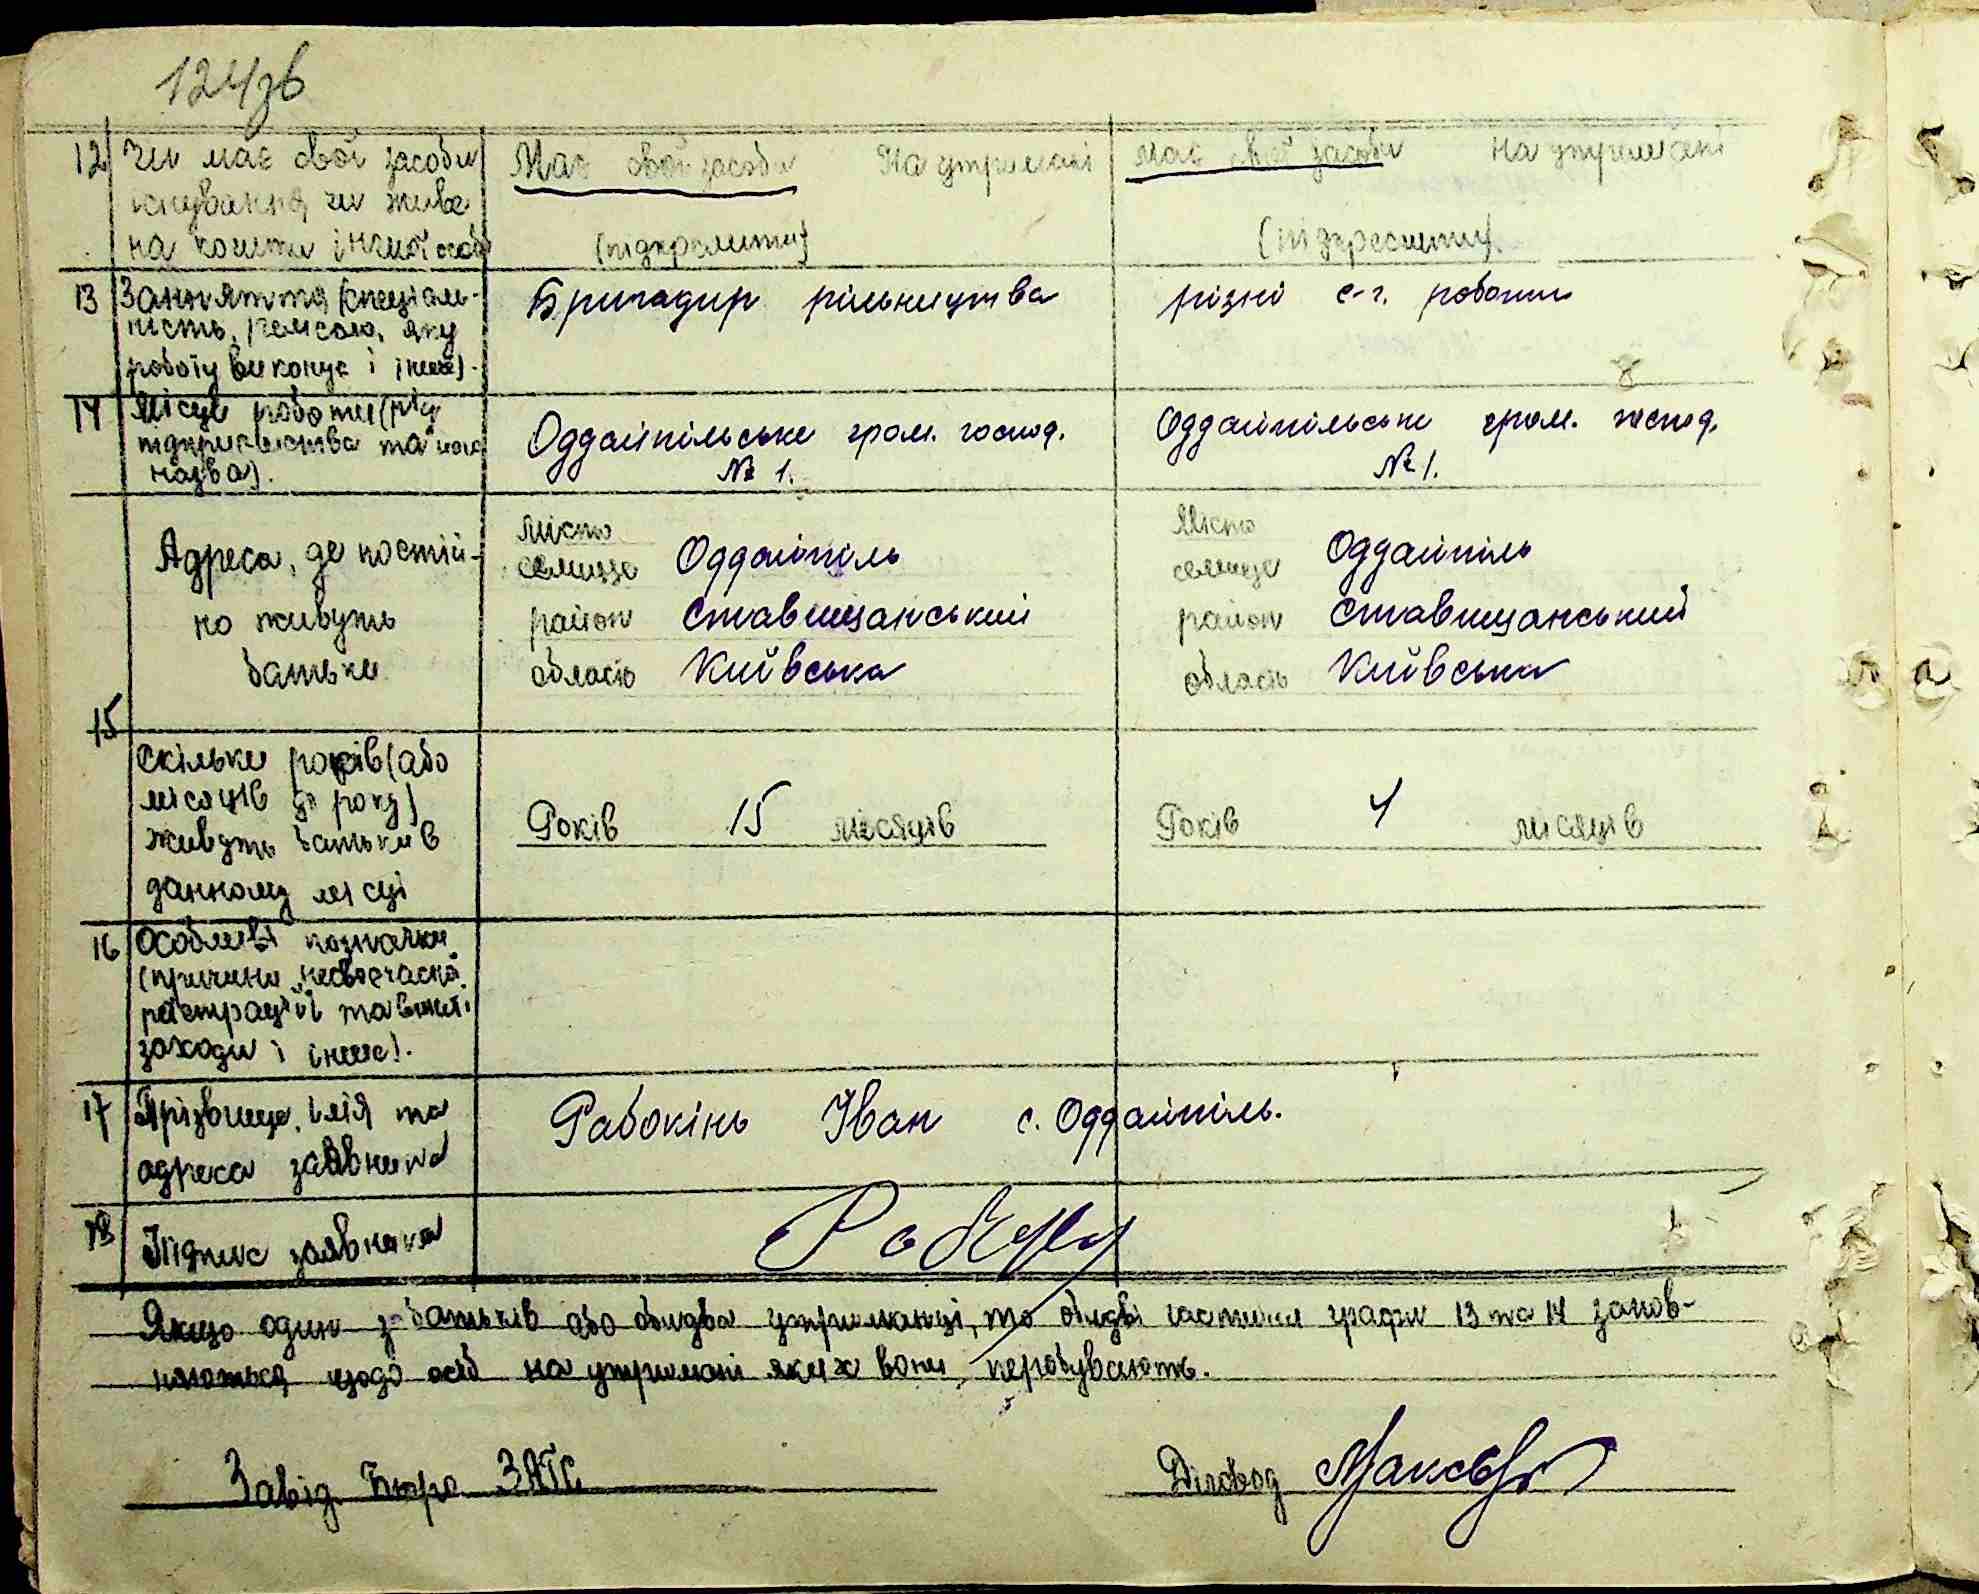 124зв
12 Чи має свої засоби
існування, чи живе
на кошти іншої особ
Має свої засоби На утримані
(підкреслити)
має свої засоби на утримані
(підкреслити)
13 Заняття (спеціаль-
ність, ремесло, яку
роботу виконує і інше).
Бригадир рільництва
різні с-г. роботи
14 Місце роботи (
підприємства та його
назва).
Оддайпільське гром. господ.
№ 1.
Оддайпільське гром. господ.
№ 1.
15
Адреса, де постій-
но живуть
батьки
місто
селище Оддайпіль
район Ставищанський
область Київська
місто
селище Оддайпіль
район Ставищанський
область Київська
Скільки років (або
місяців до року)
живуть батьки в
данному місці
Років 15 місяців
Років 4 місяців
16 Особливі позначки
(причини несвоєчасної
реєстрації та вжиті
заходи і інше).
17 Прізвище, імія та
адреса заявника
Рабокінь Іван с. Оддайпіль.
18 Підпис заявника
Якщо один з батьків або обидва утриманці, то обидві частини графи 13 та 14 запов-
няються щодо осіб на утримані яких вони перебувають.
Завід. Бюро ЗАГС
Діловод